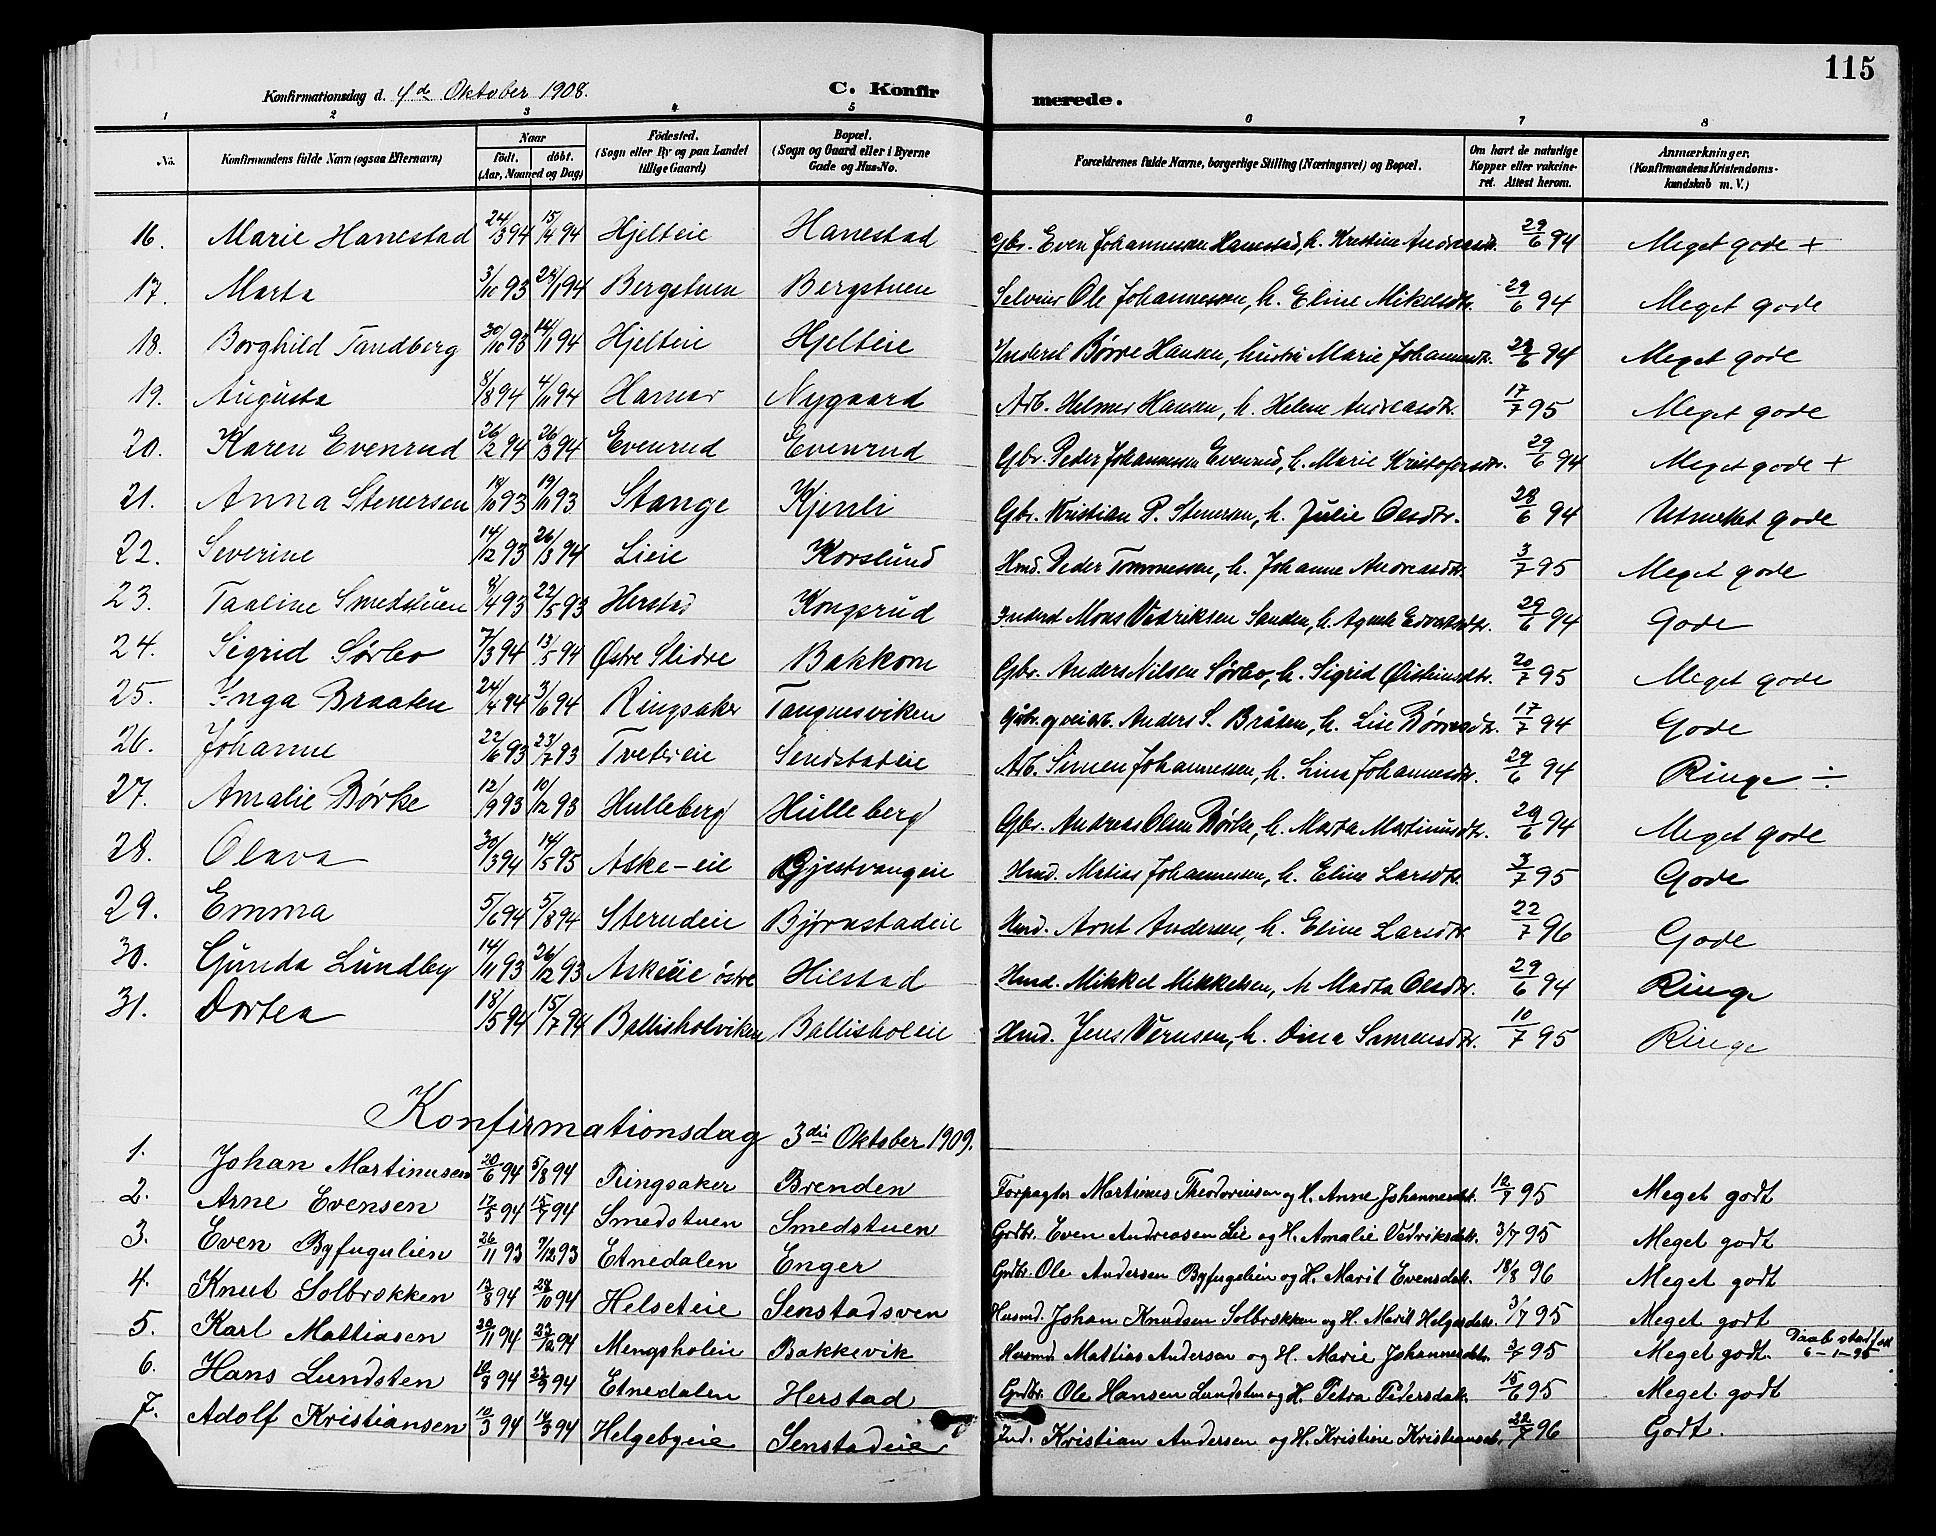 115
Konfirmationsdag d. 4de Oktober 1908. C. Konfirmerede.
1 2 3 4 5 6 7 8
No. Konfirmandens fulde Navn (ogsaa Efternavn) Naar født. døbt. (Aar, Maaned og Dag) Fødested. (Sogn eller By og paa Landet tillige Gaard) Bopæl. (Sogn og Gaard eller i Byerne Gade og Hus-No. Forældrenes fulde Navne, borgerlige Stilling (Næringsvei) og Bopæl. Om havt de naturlige Kopper eller vakcineret. Attest herom. Anmærkninger. (Konfirmandens Kristendomskundskab m. V.)
16. Marie Hanestad 24/3 94 15/4 94 Hjelteie Hanestad Gbr. Even Johannessen Hanestad, h. Kristine Andreasdtr. 29/6 94 Meget gode +
17. Marta 3/10 93 94 Bergstuen Bergstuen Selveier Ole Johannessen, h. Eline Mikelsdtr. 29/6 94 Meget gode
18. Borghild Tandberg 30/10 93 14/1 94 Hjelteie Hjelteie Inderst Børre Hansen, hustru Marie Johannesdtr. 29/6 94 Meget gode
19. Augusta 8/8 94 4/11 94 Hamar Nygaard Arb. Helmer Hansen, h. Helene Andreasdtr. 17/7 95 Meget gode
20. Karen Evenrud 26/2 94 26/3 94 Evenrud Evenrud Gbr. Peder Johannessen Evenrud, h. Marie Kristofersdtr. 29/6 94 Meget gode +
21. Anna Stenersen 93 19/11 93 Stange Kjenli Gbr. Kristian P. Stenersen, h. Julie Olsdtr. 28/6 94 Utmerket gode
22. Severine 14/12 93 26/3 94 Lieie Korslund Hmd. Peder Tommessen, h. Johanne Andreasdtr. 3/7 95 Meget gode
23. Taaline Smedstuen 8/4 93 22/5 93 Herstad Kongsrud Inderst Mons Vedriksen Sanden, h. Agnete Edvardsdtr. 29/6 94 Gode
24. Sigrid Sørbo 7/3 94 13/5 94 Østre Slidre Bakkom Gbr. Anders Nilsen Sørbo, h. Sigrid Øisteinsdtr. 20/7 95 Meget gode
25. Inga Braaten 24/4 94 3/6 94 Ringsaker Tangnesviken Anders S. Bråten, h. Lise Børresdtr. 17/7 94 Gode
26. Johanne 22/6 93 23/7 93 Tveteeie Sendstadeie Arb. Simen Johannessen, h. Lina Johannesdtr. 29/6 94 Ringe ÷
27. Amalie Børke 12/9 93 10/12 93 Hulleberg Hulleberg Gbr. Andreas Olsen Børke, h. Marta Martinusdtr. 29/6 94 Meget gode
28. Olava 30/3 94 14/5 95 Aske-eie Gjestvangeie Hmd. Matias Johannessen, h. Eline Larsdtr. 3/7 95 Gode
29. Emma 5/6 94 5/8 94 Sterudeie Bjørnstadeie Hmd. Arnt Andersen, h. Eline Larsdtr 22/7 96 Gode
30. Gunda Lundby 14/11 93 26/12 93 Askeeie östre Hiestad Hmd. Mikkel Mikkelsen, h Marta Olsdtr. 29/6 94 Ringe
31. Dortea 18/5 94 15/7 94 Ballisholviken Ballisholeie Hmd. Jens Vernsen, h. Dina Simensdtr. 10/7 95 Ringe
Konfirmationsdag 3die Oktober 1909.
1. Johan Martinusen 20/6 94 5/8 94 Ringsaker Brenden Forpagter Martinus Theodorinsen og H. Anne Johannesdtr. 12/7 95 Meget godt
2. Arne Evensen 17/5 94 15/7 94 Smedstuen Smedstuen Grdbr. Even Andreasen Lie og H. Amalie Vedriksdtr. 3/7 95 Meget godt
3. Even Byfuglien 26/11 93 7/12 93 Etnedalen Enger Grdbr. Ole Andersen Byfuglien og H. Marit Evensdtr. 18/8 96 Meget godt
4. Knut Solbrekken 13/8 94 94 Helseteie Senstadsven Husmd. Johan Knudsen Solbrekken og H. Marit Helgesdtr. 3/7 95 Meget godt
5. Karl Mattiasen 94 94 Mengsholeie Bakkevik Husmd. Mattias Andersen og H. Marie Johannesdtr. 3/7 95 Meget godt. Daab stadfæst 6-1-95
6. Hans Lundsten 94 94 Etnedalen Herstad Grdbr. Ole Hansen Lundsten og H. Petra Pedersdtr. 15/6 95 Meget godt
7. Adolf Kristiansen 10/3 94 94 Helgebyeie Senstadeie Ind. Kristian Andersen og H. Kristine Kristiansdtr. 22/7 96 Godt.